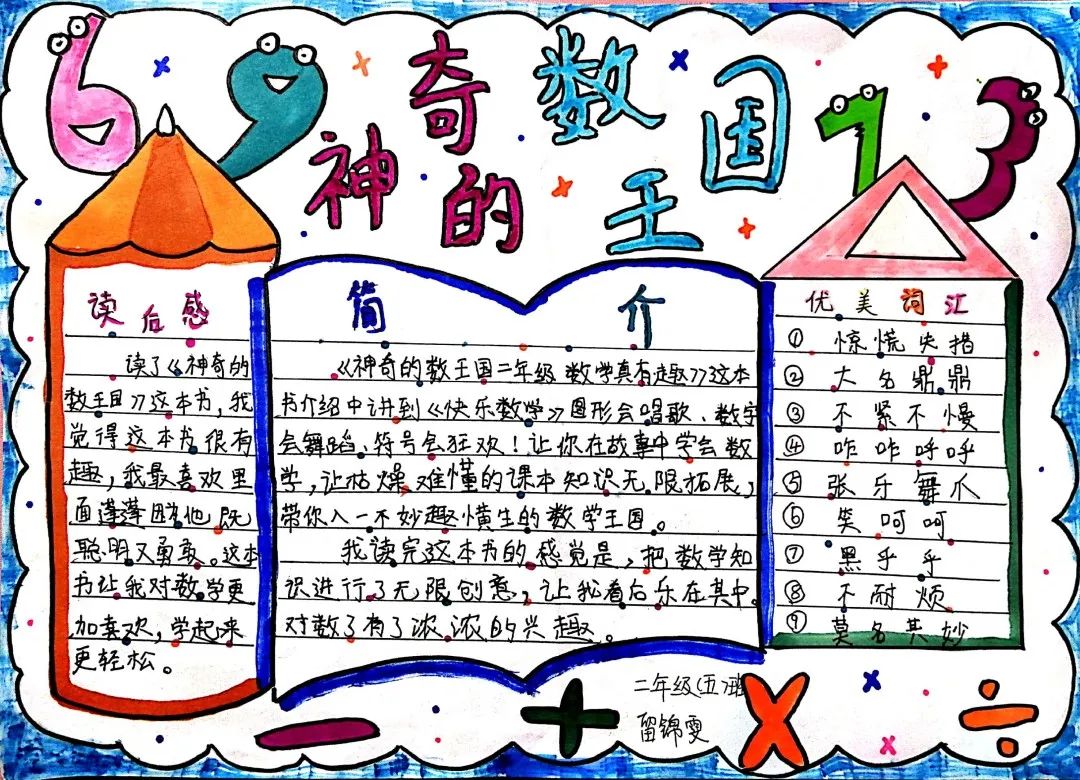 6 9 7 3
神奇的数王国
读后感
读了《神奇的
数王国》这本书,我
觉得这本书很有
趣,我最喜欢里
面蓬蓬因为他既
聪明又勇敢。这本
书让我对数学更
加喜欢,学起来
更轻松。
简 介
《神奇的数王国二年级 数学真有趣》这本
书介绍中讲到《快乐数学》图形会唱歌、数字
会舞蹈、符号会狂欢!让你在故事中学会数
学,让枯燥难懂的课本知识无限拓展,
带你入一不妙趣横生的数学王国。
我读完这本书的感觉是,把数学知
识进行了无限创意,让我看后乐在其中,
对数了有了浓浓的兴趣。
优美词汇
① 惊慌失措
② 大名鼎鼎
③ 不紧不慢
④ 咋咋呼呼
⑤ 张牙舞爪
⑥ 笑呵呵
⑦ 黑乎乎
⑧ 不耐烦
⑨ 莫名其妙
二年级(五)班
留锦雯
- + × ÷